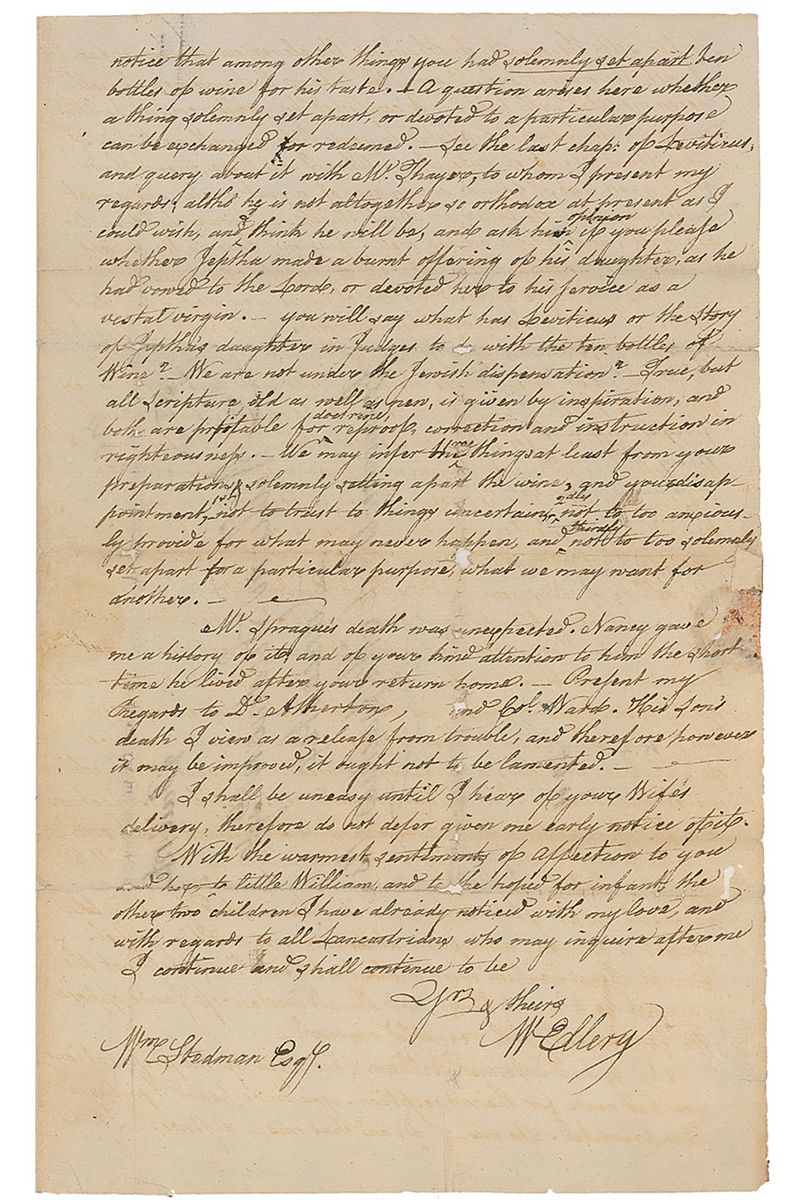 notice that among other things you had solemnly set apart ten
bottles of wine for his taste. – A question arises here whether
a thing solemnly set apart, or devoted to a particular purpose
can be exchanged or redeemed. – See the last chap: of Leviticus,
and query about it with Mr. Thayer, to whom I present my
regards, altho he is not altogether so orthodox at present as I
could wish, and I think he will be, and ask his opinion if you please
whether Jeptha made a burnt offering of his daughter, as he
had vowed to the Lord, or devoted her to his service as a
vestal virgin. – You will say what has Leviticus or the story
of Jepthas daughter in Judges to do with the ten bottles of
Wine? – We are not under the Jewish dispensation? – True, but
all scripture old as well as new, is given by inspiration, and
both are profitable for doctrine, reproof, correction and instruction in
righteousness. – We may infer three things at least from your
preparation & solemnly setting apart the wine, and your disap-
pointment, 1st. not to trust to things uncertain, 2dly not to too anxious-
ly provide for what may never happen, and thirdly not to too solemnly
set apart for a particular purpose, what we may want for
another. –
Mr. Sprague's death was unexpected. Nancy gave
me a history of it and of your kind attention to him the short
time he lived after your return home. – Present my
Regards to Dr. Atherton, and Col. Ward. His Son's
death I view as a release from trouble, and therefore however
it may be improved, it ought not to be lamented. –
I shall be uneasy until I hear of your Wife's
delivery, therefore do not defer given me early notice of it.
With the warmest sentiments of affection to you
and her to little William, and to the hoped for infant, the
other two children I have already noticed with my love, and
with regards to all Lancastrians who may inquire after me
I continue and shall continue to be
Yrs & theirs
W Ellery
Wm Stedman Esqr.